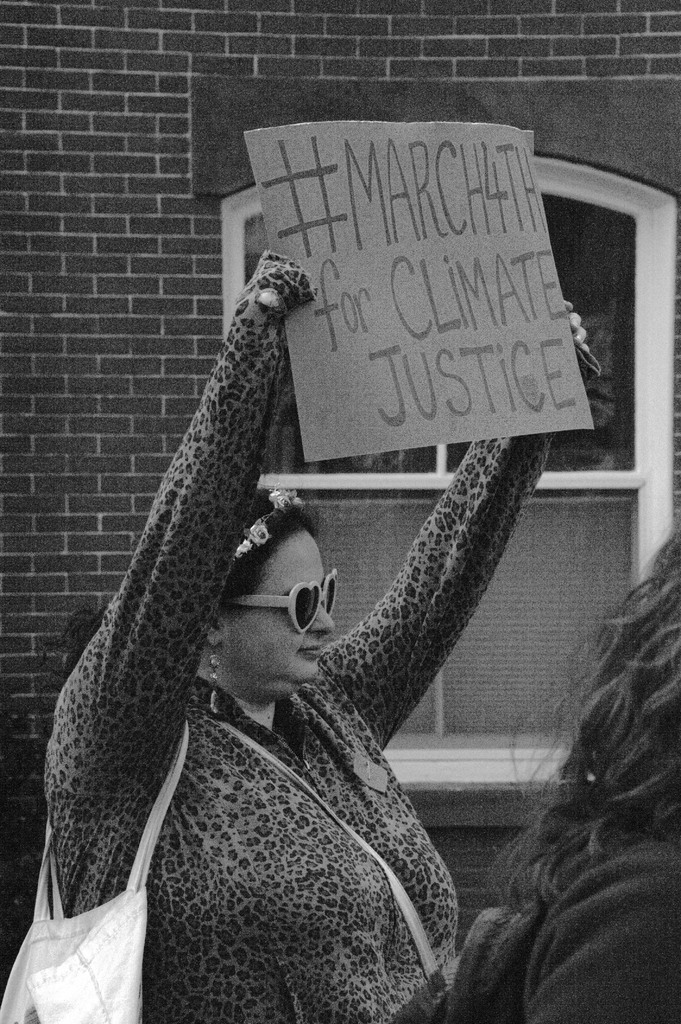 #MARCH4TH
for CLiMATE
JUSTiCE